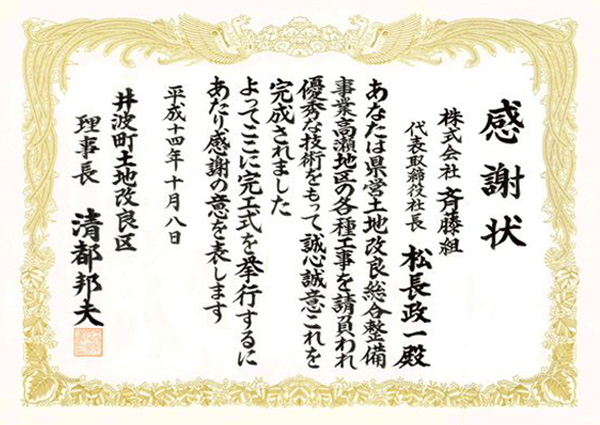 感謝状
株式会社 斉藤組
代表取締役社長 松長政一殿
あなたは県営土地改良総合整備
事業高瀬地区の各種工事を請負われ
優秀な技術をもって誠心誠意これを
完成されました
よってここに完工式を挙行するに
あたり感謝の意を表します
平成十四年十月八日
井波町土地改良区
理事長 清都邦夫